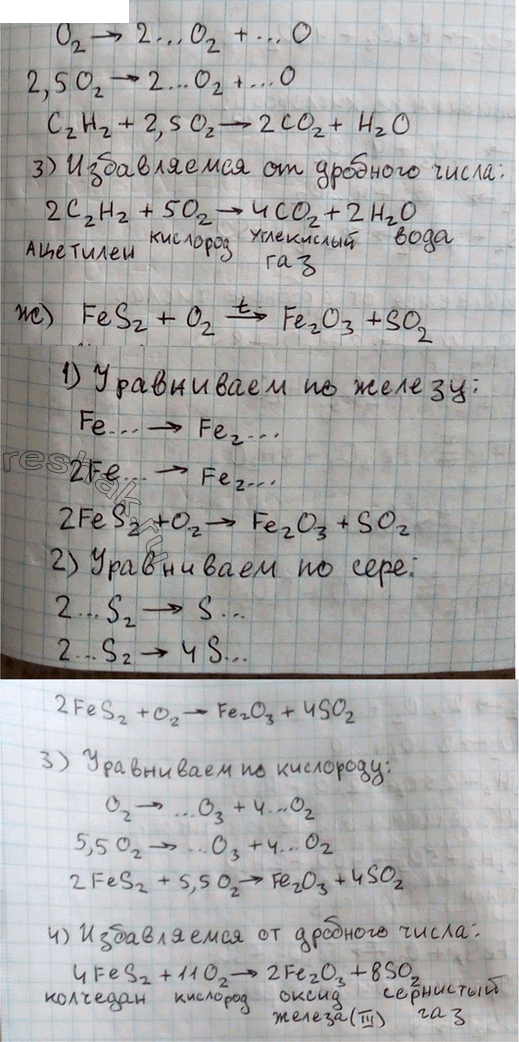 O₂ → 2...O₂ + ...O
2,5O₂ → 2...O₂ + ...O
C₂H₂ + 2,5O₂ → 2CO₂ + H₂O
3) Избавляемся от дробного числа:
2C₂H₂ + 5O₂ → 4CO₂ + 2H₂O
Ацетилен кислород углекислый газ вода
ж) FeS₂ + O₂ →ᵗ Fe₂O₃ + SO₂
1) Уравниваем по железу:
Fe... → Fe₂...
2Fe... → Fe₂...
2FeS₂ + O₂ → Fe₂O₃ + SO₂
2) Уравниваем по сере:
2...S₂ → S...
2...S₂ → 4S...
2FeS₂ + O₂ → Fe₂O₃ + 4SO₂
3) Уравниваем по кислороду:
O₂ → ...O₃ + 4...O₂
5,5O₂ → ...O₃ + 4...O₂
2FeS₂ + 5,5O₂ → Fe₂O₃ + 4SO₂
4) Избавляемся от дробного числа:
4FeS₂ + 11O₂ → 2Fe₂O₃ + 8SO₂
колчедан кислород оксид железа(III) сернистый газ
reshak.ru